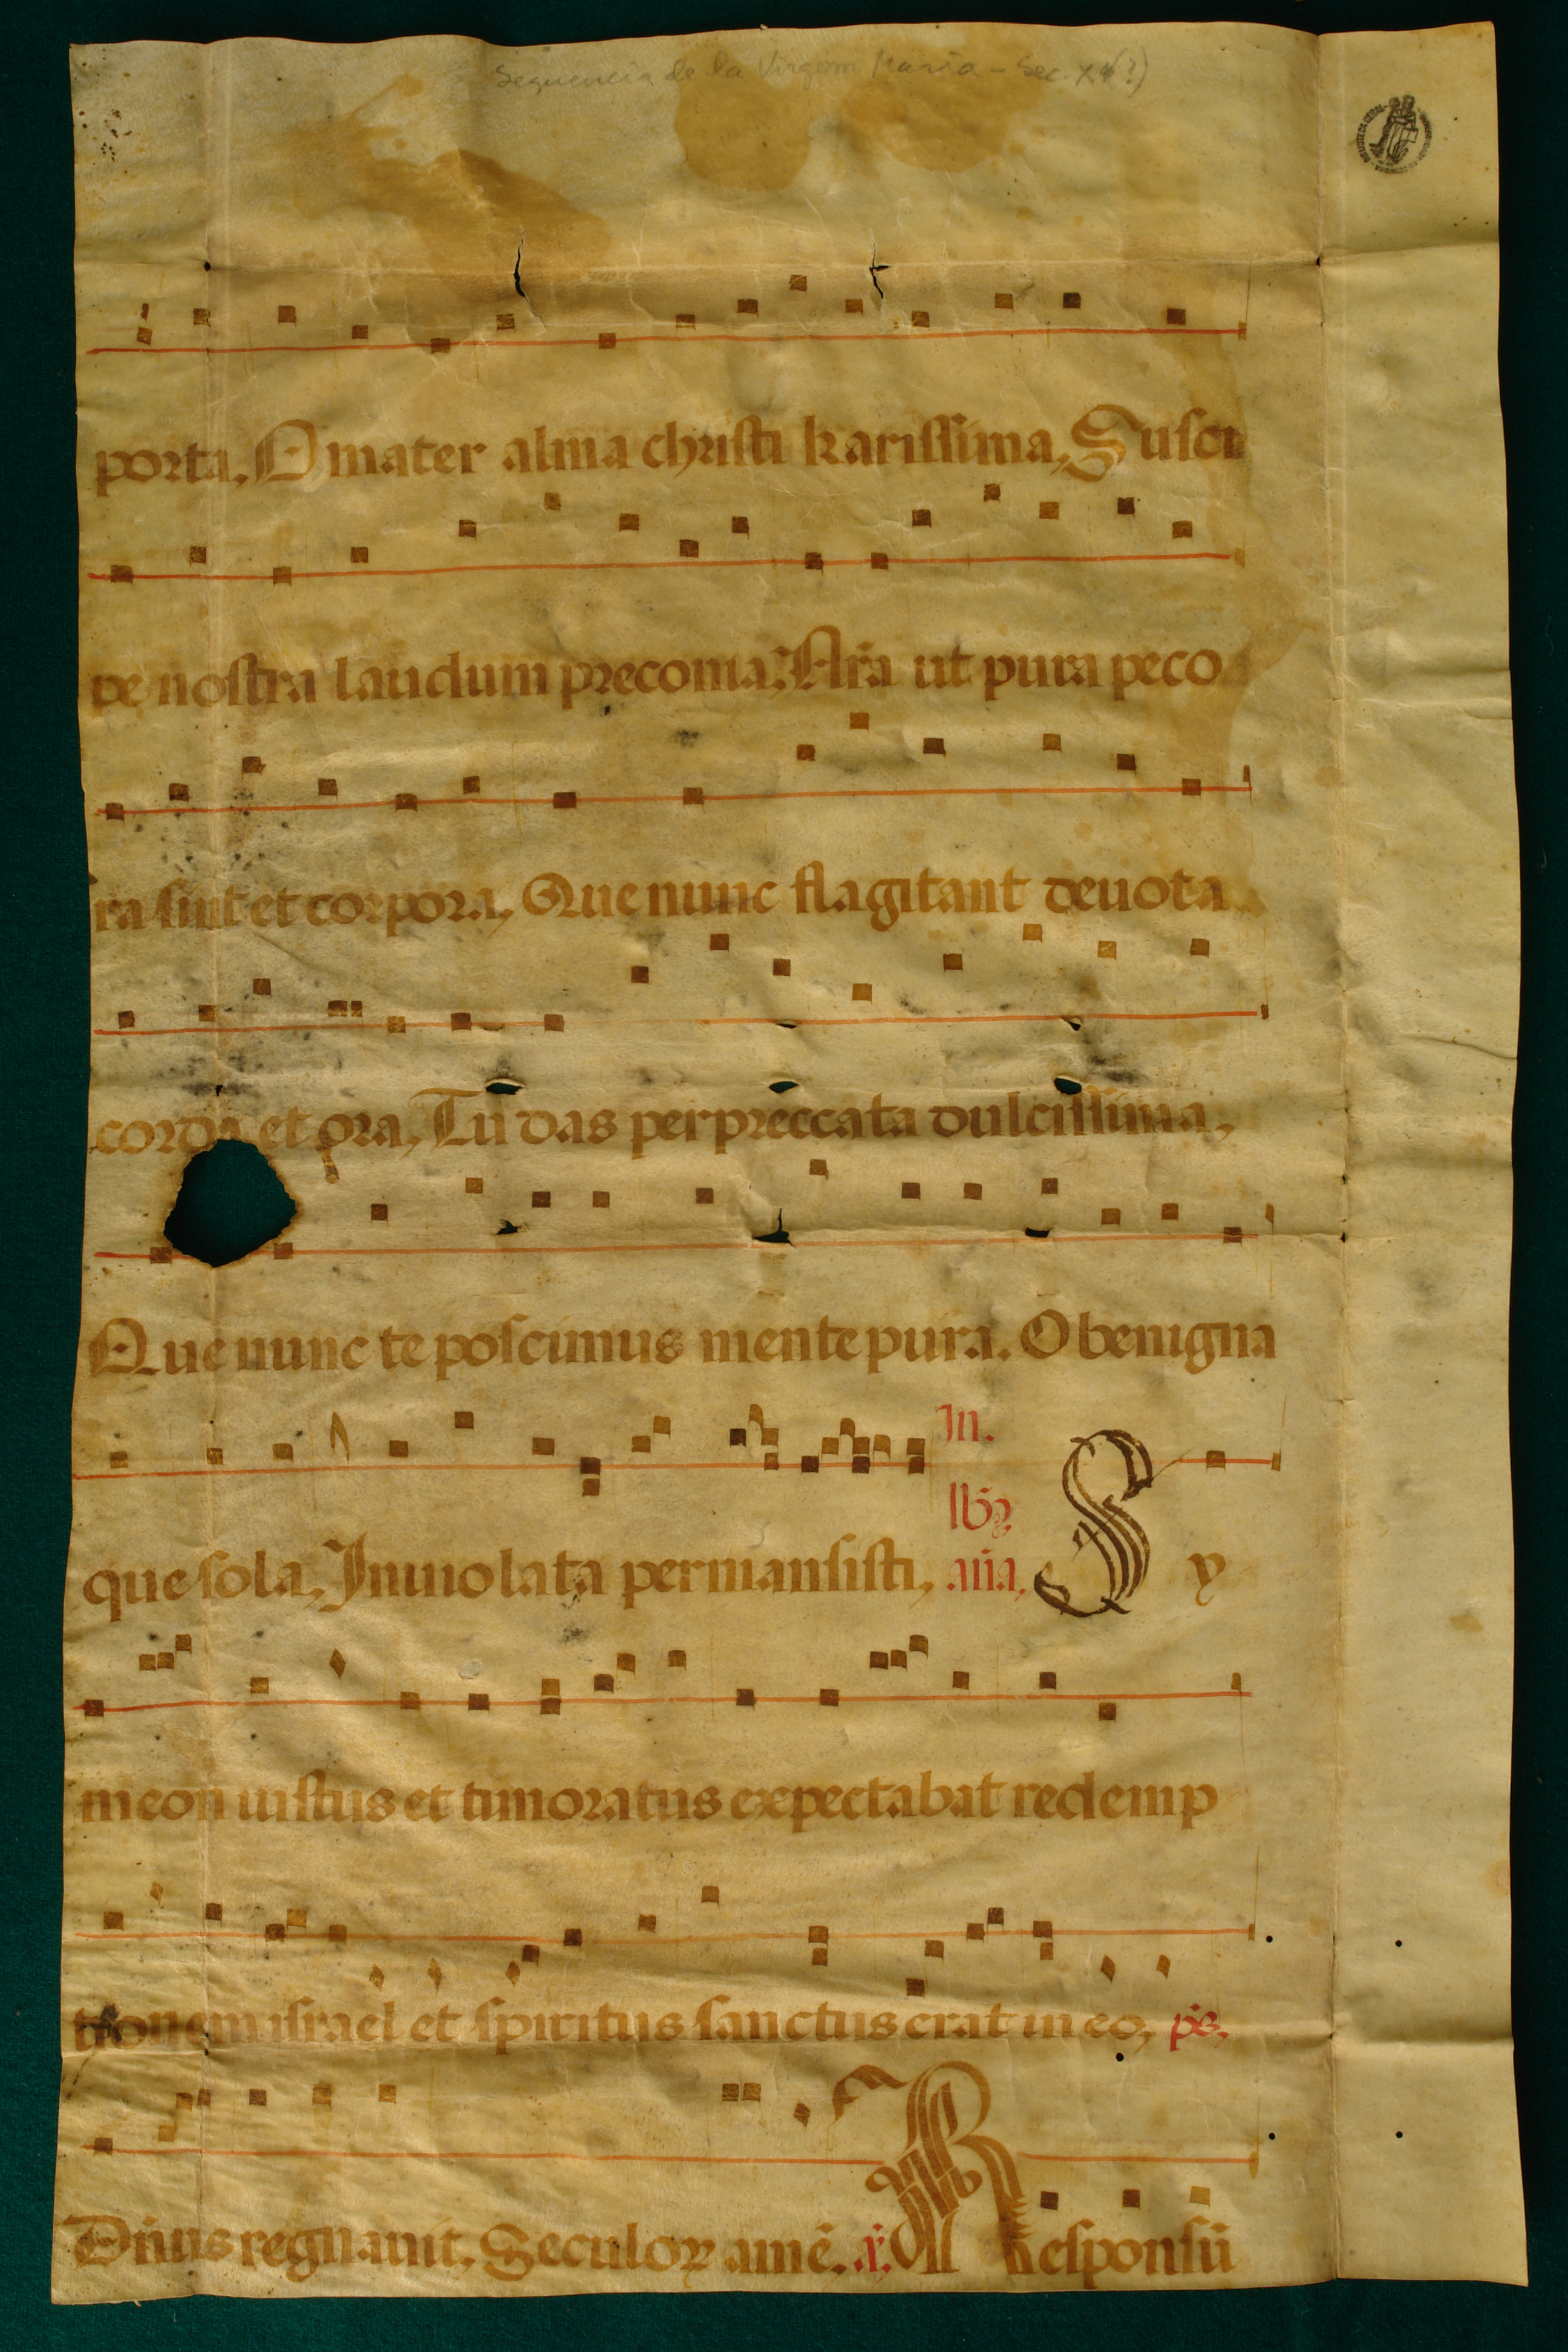 Sequencia de la Virgem Maria – Sec. XV(?)
porta, O mater alma christi karissima, Susci
pe nostra laudum preconia: Nr̃a ut pura peco
ra sint et corpora, Que nunc flagitant deuota
corda et ora, Tu das per preccata dulcissima,
Que nunc te poscimus mente pura. O benigna
In.
que sola, Inuiolata permansisti, Sy
meon iustus et timoratus expectabat redemp
tionem israel et spiritus sanctus erat in eo, p̃s.
Dñus regnauit, Seculoꝝ amẽ. Responsũ